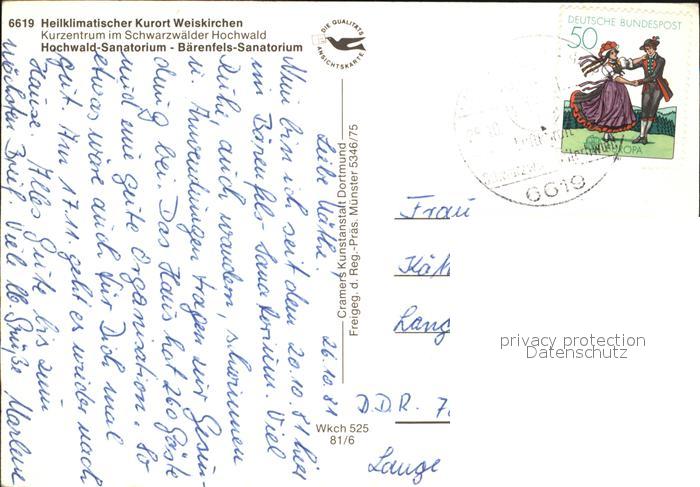 6619 Heilklimatischer Kurort Weiskirchen
Kurzentrum im Schwarzwälder Hochwald
Hochwald-Sanatorium - Bärenfels-Sanatorium
DIE QUALITÄTS
ANSICHTSKARTE
DEUTSCHE BUNDESPOST
50
EUROPA
6619
26.10.81
Liebe Käthe!
Nun bin ich seit dem 20.10.81 hier
im Bärenfels-Sanatorium. Viel
Ruhe, auch wandern, schwimmen
u. Anwendungen tragen zur Gesun-
dung bei. Das Haus hat 260 Gäste
und eine gute Organisation. So
etwas wäre auch für Dich mal
gut. Am 17.11. geht es wieder nach
Hause. Alles Gute bis zum
nächsten Brief. Viel lb. Grüße Marlene
Cramers Kunstanstalt Dortmund
Freigeg. d. Reg.-Präs. Münster 5346/75
Wkch 525
81/6
Frau
Käth
Lang
DDR. 7.
Lange
privacy protection
Datenschutz